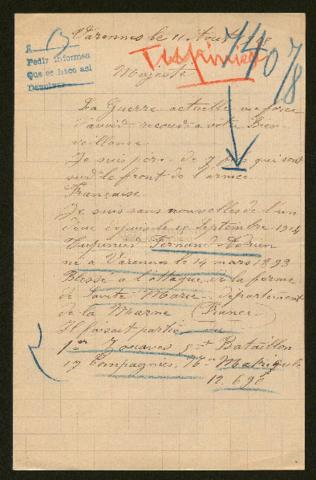 Varennes le 11 Août
740
7/8
Pedir informes
Que se hace así
Majesté
La Guerre actuelle me force
d'avoir recours à votre Bien-
veillance.
Je suis père de 7 fils qui sont
sur le front de l'armée
Française
Je suis sans nouvelles de l'un
d'eux depuis le 19 Septembre 1914
Fernand
né à Varennes le 14 mars 1893
Blessé à l'attaque de la ferme
de Sainte Marie département
de la Marne (France)
Il faisait partie du
1er Zouaves 5me Bataillon
17 Compagnie, Matricule
12.698